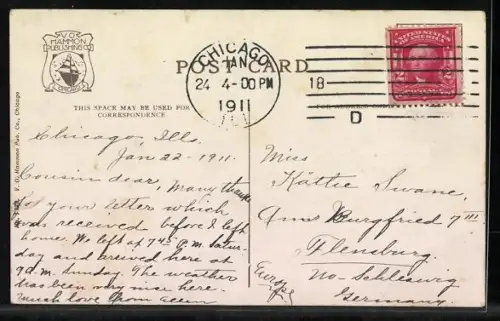 V.O.
HAMMON
PUBLISHING CO.
CHICAGO
POST CARD
CHICAGO
JAN
24 4-00 PM
1911
ILL.
18
D
UNITED STATES
OF AMERICA
THIS SPACE MAY BE USED FOR
CORRESPONDENCE
V. O. Hammon Pub. Co., Chicago
Chicago, Ills.
Jan 22 - 1911.
Cousin dear, Many thanks
for your letter which
was received before I left
home. We left at 7 45 P.M. Satur-
day and arrived here at
9 A.M. Sunday. The weather
has been very nice here.
Much love from
Miss
Kättie Swane,
Burgfried 7 III
Flensburg.
No-Schleswig
Germany.
Europe